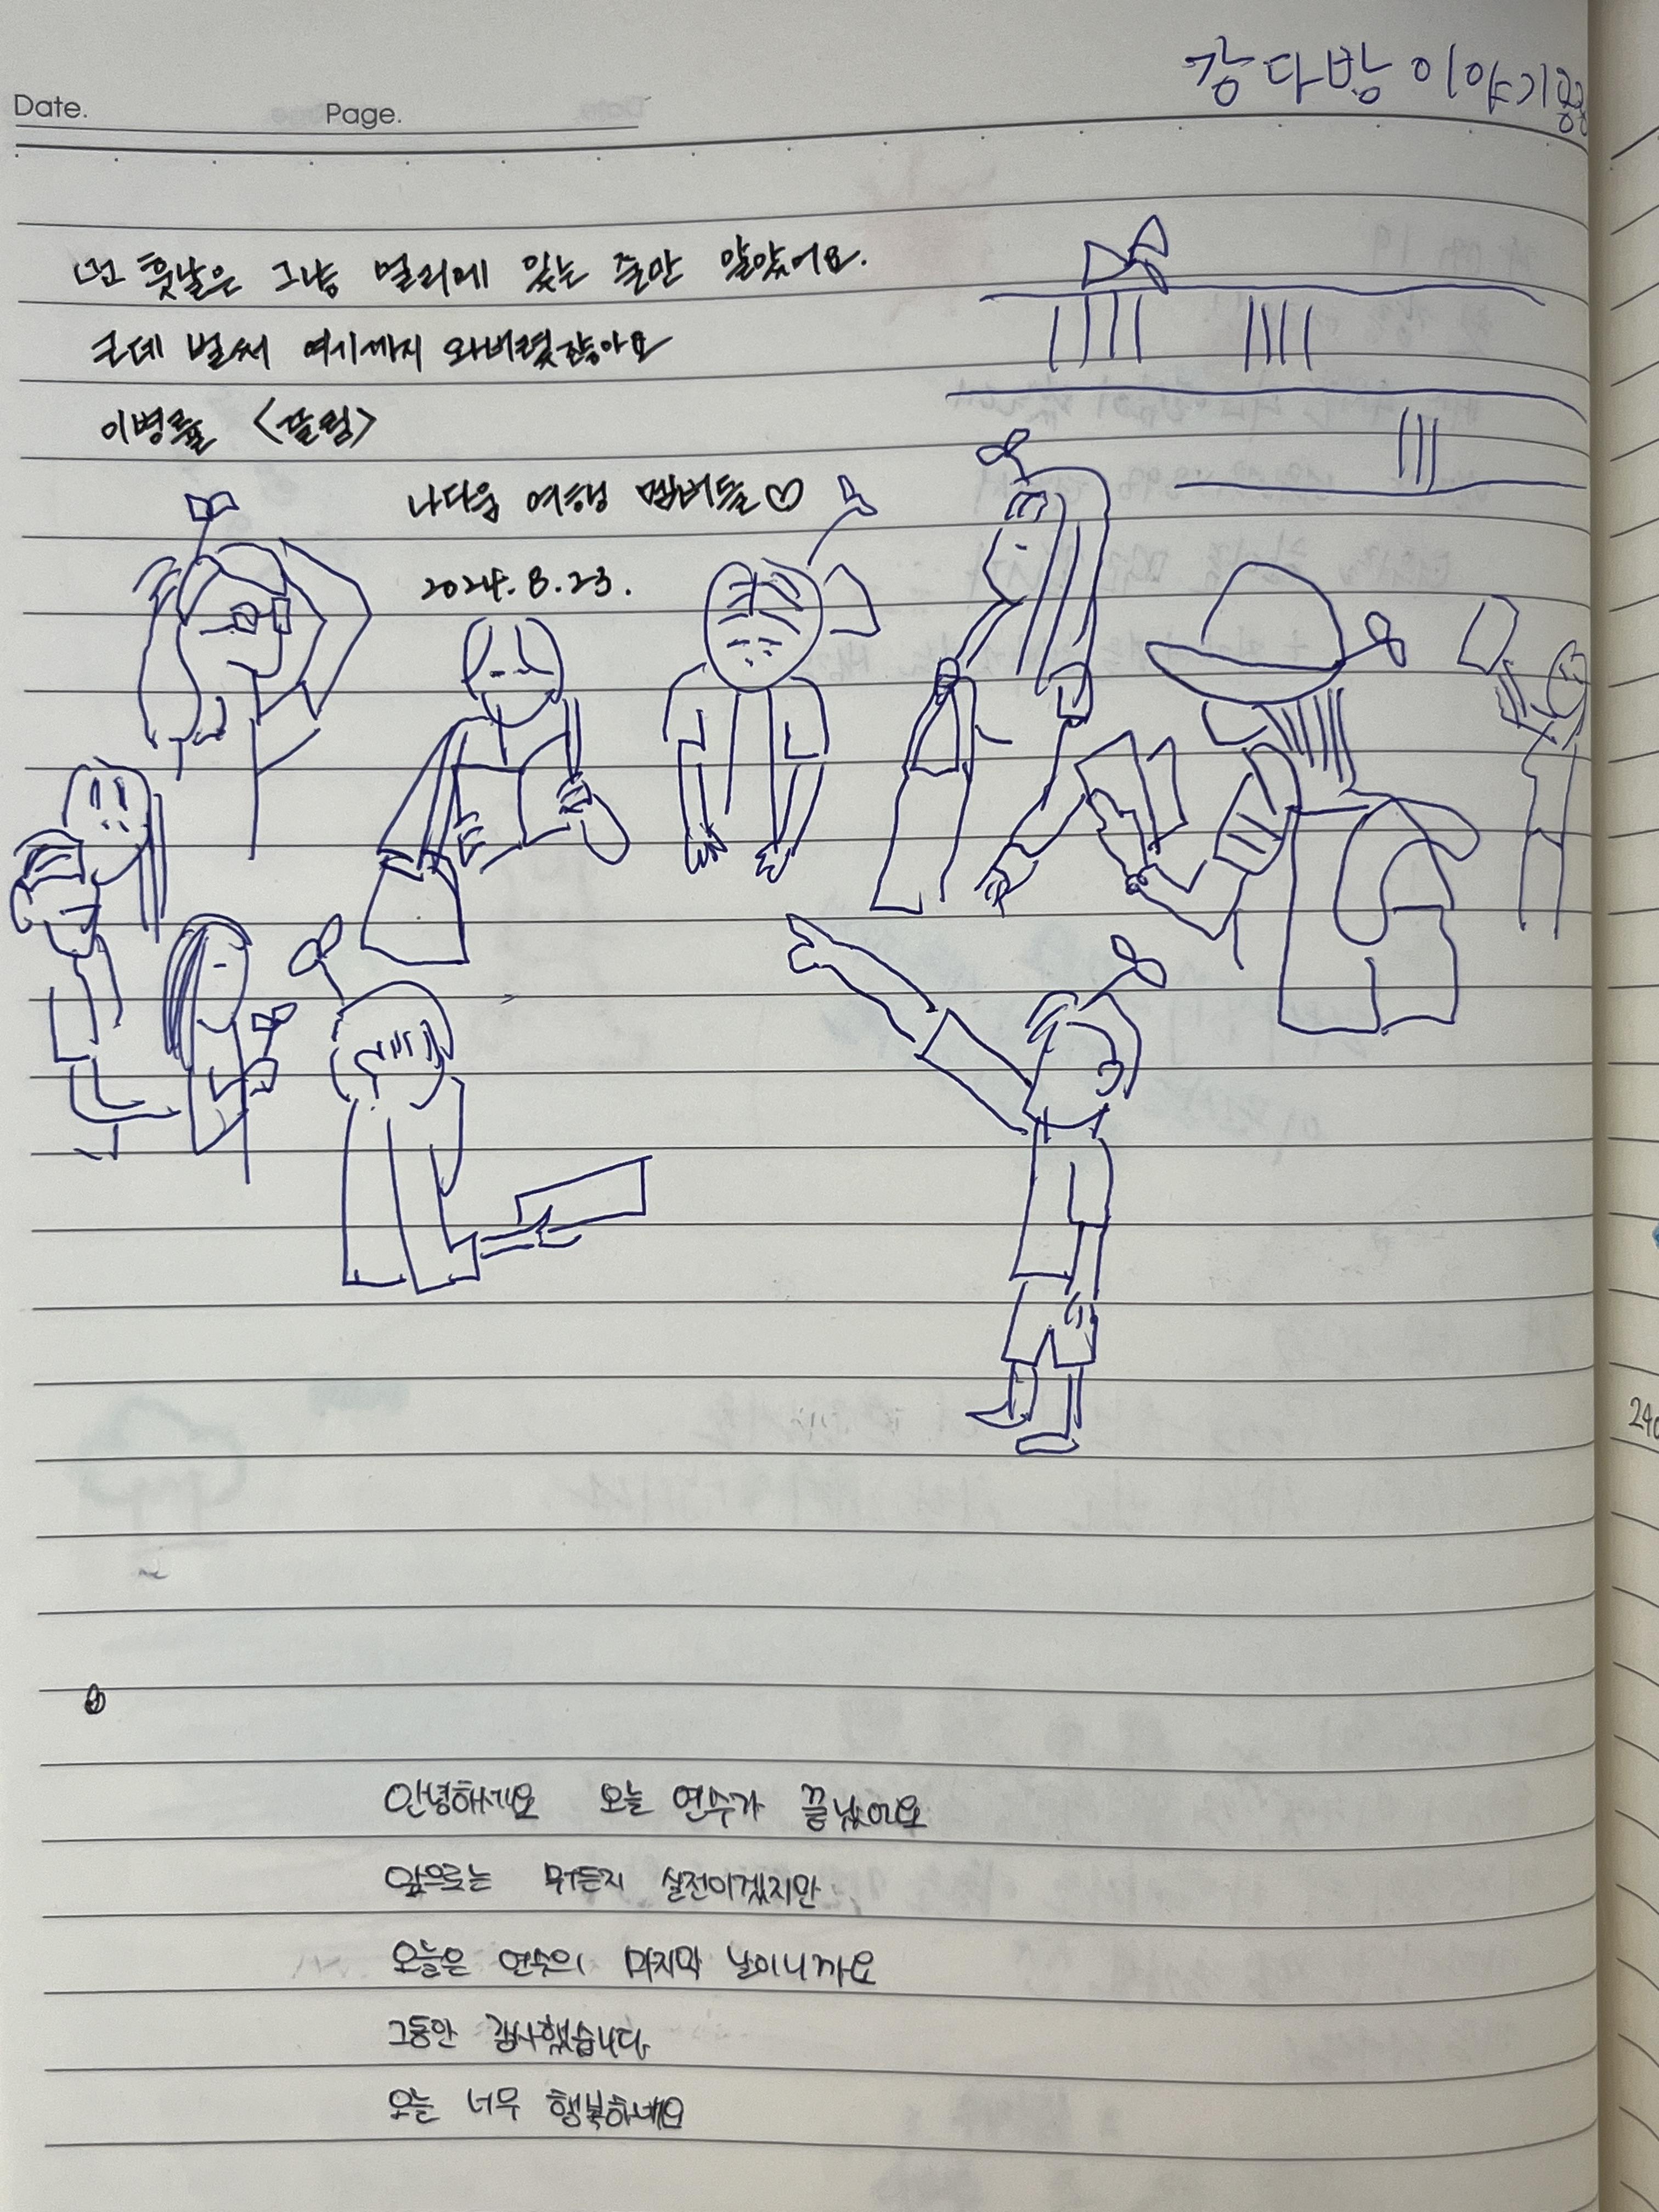 Date. Page.
강다방 이야기공
먼 훗날은 그냥 멀리에 있는 줄만 알았어요.
근데 벌써 여기까지 와버렸잖아요
이병률 <끌림>
나다움 여행 멤버들♡
2024.8.23.
안녕하세요 오늘 연수가 끝났어요
앞으로는 뭐든지 실전이겠지만
오늘은 연수의 마지막 날이니까요
그동안 감사했습니다
오늘 너무 행복하네요